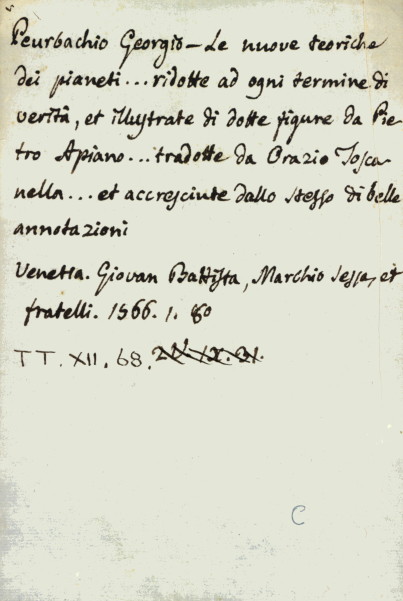 Peurbachio Georgio – Le nuove teoriche
dei pianeti... ridotte ad ogni termine di
verità, et illustrate di dotte figure da Pie-
tro Apiano... tradotte da Orazio Tosca-
nella... et accresciute dallo stesso di belle
annotazioni
Venetia. Giovan Battista, Marchio Sessa, et
fratelli. 1566. 1. 80
TT. XII. 68.
C